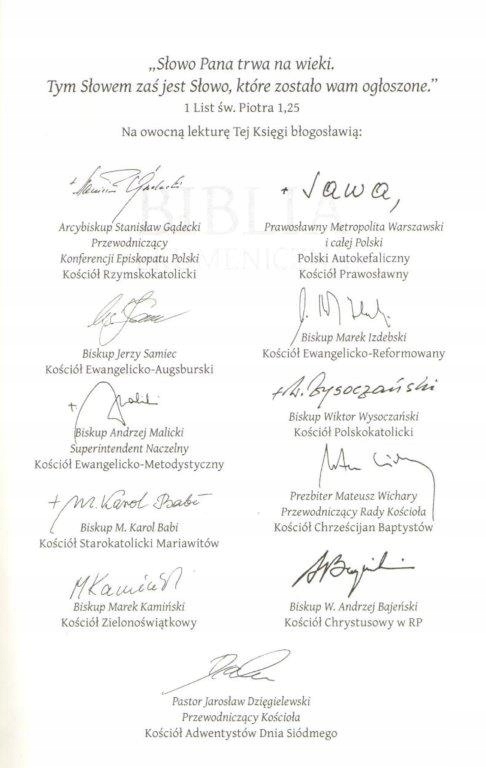 „Słowo Pana trwa na wieki.
Tym Słowem zaś jest Słowo, które zostało wam ogłoszone.”
1 List św. Piotra 1,25
Na owocną lekturę Tej Księgi błogosławią:
Arcybiskup Stanisław Gądecki
Przewodniczący
Konferencji Episkopatu Polski
Kościół Rzymskokatolicki
+ Sawa,
Prawosławny Metropolita Warszawski
i całej Polski
Polski Autokefaliczny
Kościół Prawosławny
Biskup Jerzy Samiec
Kościół Ewangelicko-Augsburski
Biskup Marek Izdebski
Kościół Ewangelicko-Reformowany
Biskup Andrzej Malicki
Superintendent Naczelny
Kościół Ewangelicko-Metodystyczny
+ W. Wysoczański
Biskup Wiktor Wysoczański
Kościół Polskokatolicki
+ M. Karol Babi
Biskup M. Karol Babi
Kościół Starokatolicki Mariawitów
Prezbiter Mateusz Wichary
Przewodniczący Rady Kościoła
Kościół Chrześcijan Baptystów
MKamiński
Biskup Marek Kamiński
Kościół Zielonoświątkowy
Biskup W. Andrzej Bajeński
Kościół Chrystusowy w RP
Pastor Jarosław Dzięgielewski
Przewodniczący Kościoła
Kościół Adwentystów Dnia Siódmego